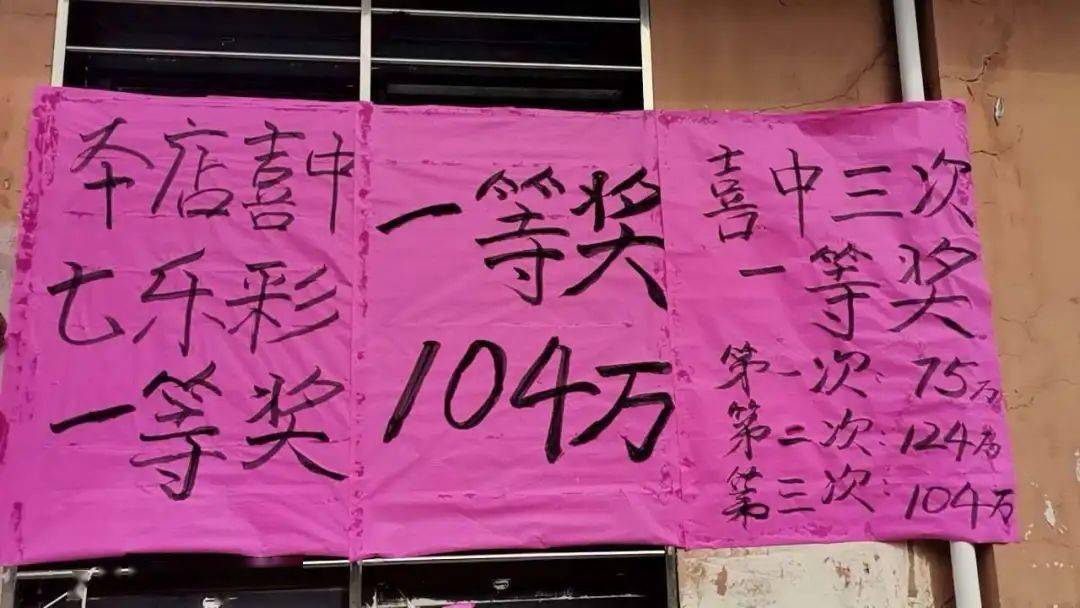 本店喜中
七乐彩
一等奖
一等奖
104万
喜中三次
一等奖
第一次:75万
第二次:124万
第三次:104万